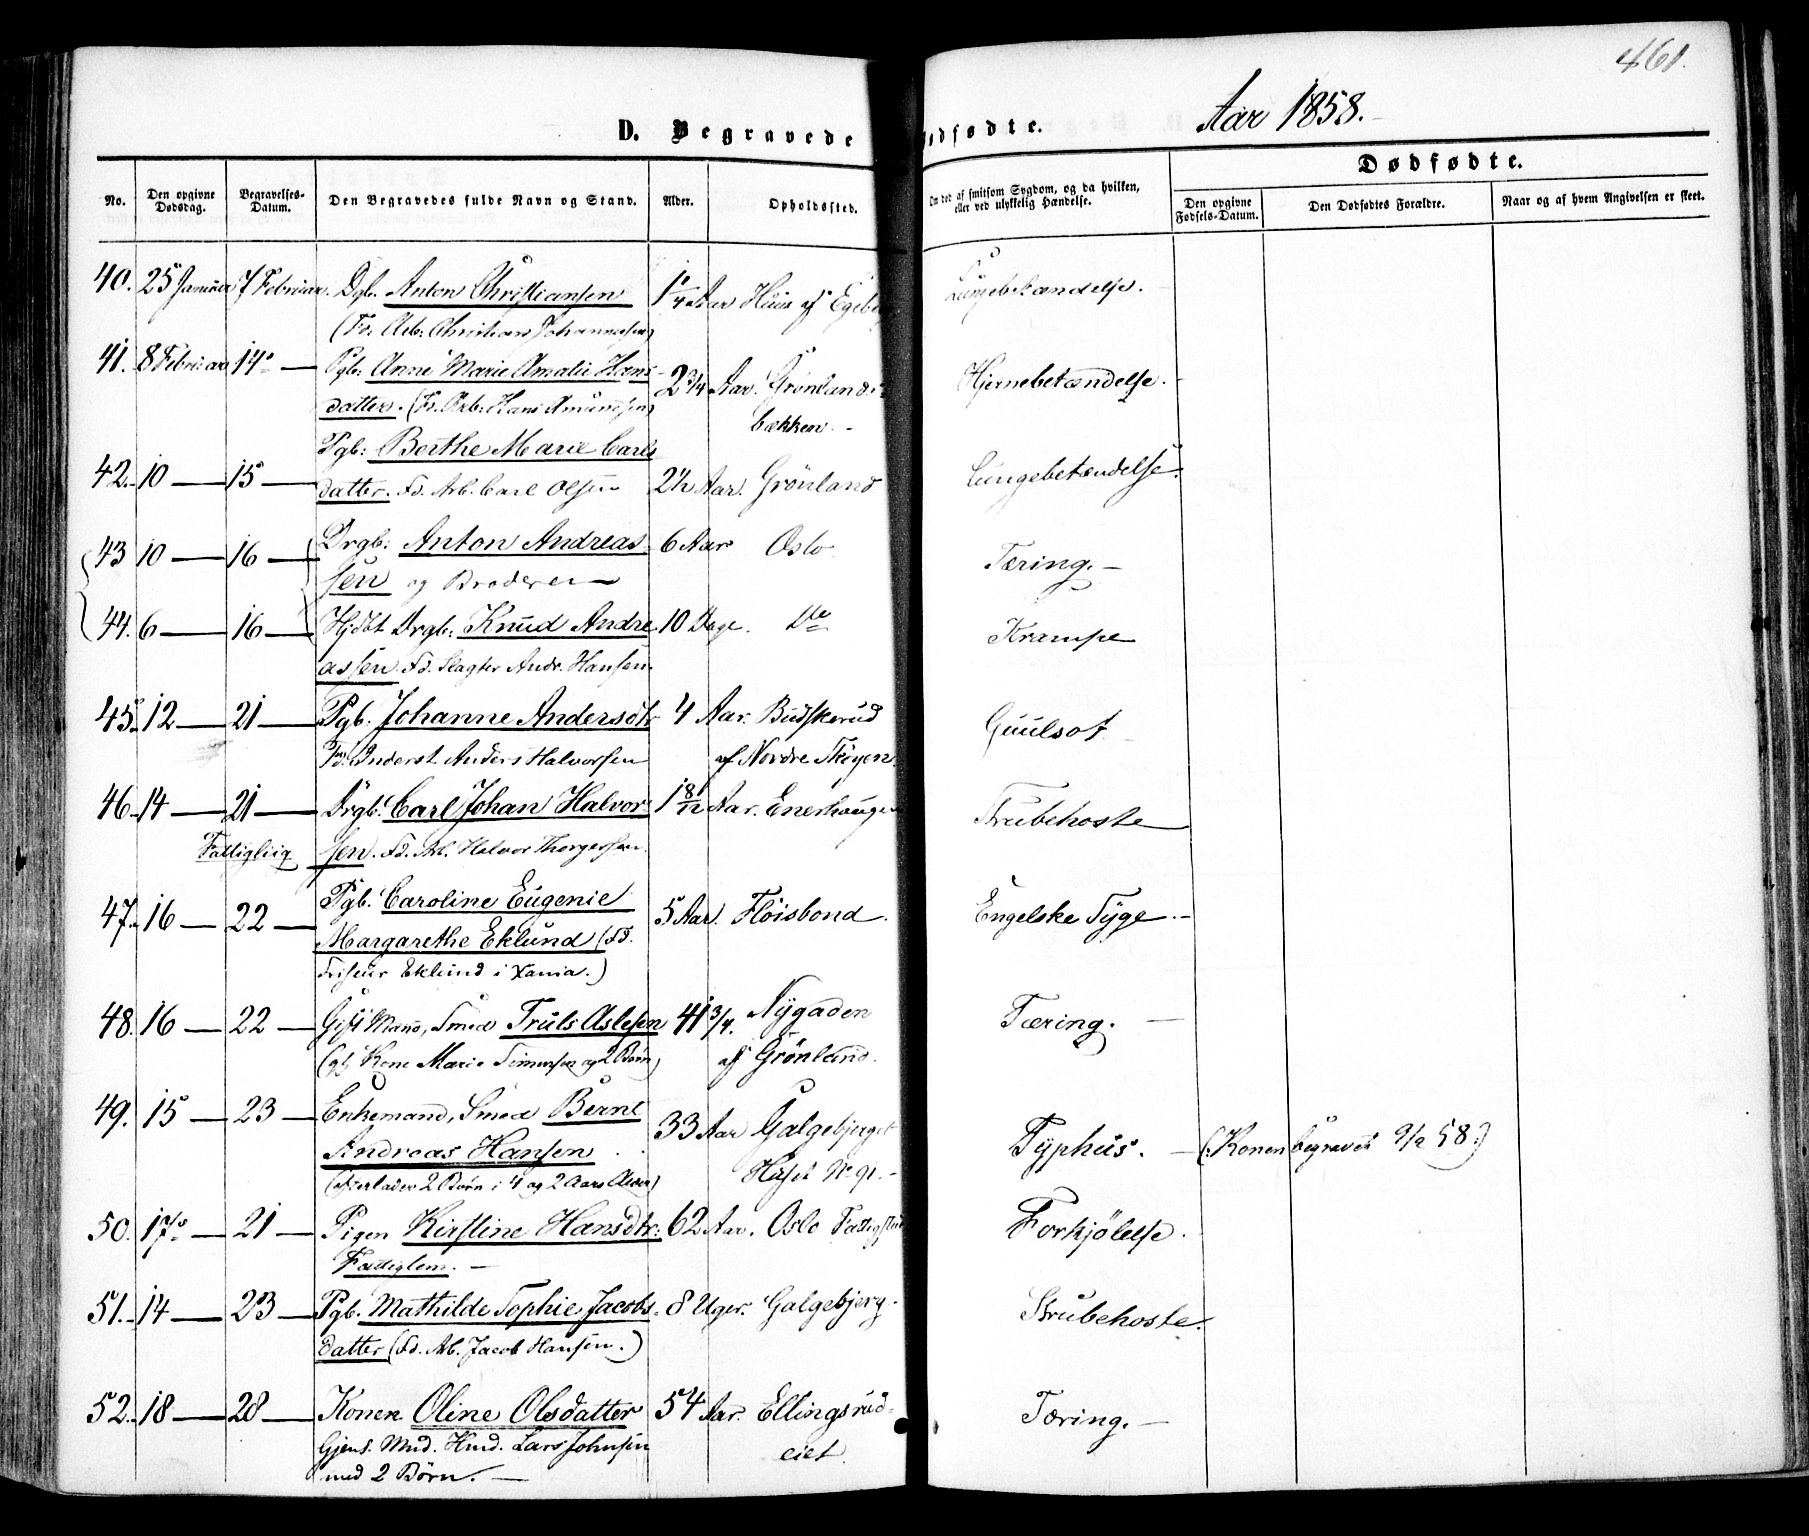 461.
Aar 1858.
D. Begravede
Dødfødte.
No.
Den opgivne Dødsdag.
Begravelses-Datum.
Den Begravedes fulde Navn og Stand.
Alder.
Opholdssted.
Om død af smitsom Sygdom, og da hvilken, eller ved ulykkelig Hændelse.
Dødfødte.
Den opgivne Fødsels-Datum.
Den Dødfødtes Forældre.
Naar og af hvem Angivelsen er skeet.
40. 25 Januar 7 Februar. Dgb. Anton Christiansen 1 1/4 Aar Huus af Egeberg Lungebetændelse.
(Fd. Arb: Christian Johannesen)
41. 8 Februar 14 — Pgb: Anne Marie Amalie Hans- 2 3/4 Aar. Grønlands- Hjernebetændelse.
datter. (Fd. Arb: Hans Amundsen) bækken.
42. 10 — 15 — Pgb: Berthe Marie Carls 2 1/2 Aar. Grønland Lungebetændelse.
datter. Fd. Arb. Carl Olsen
43 10 — 16 — Drgb: Anton Andreas- 6 Aar Oslo Tæring. —
sen og Broderen —
44. 6 — 16 — Hjdbt Drgb: Knud Andre 10 Dage. Do Krampe
assen. Fd. Slagter Andr. Hansen.
45. 12 — 21 — Pgb. Johanne Andersdtr 4 Aar. Budskerud Guulsot
Fd. Inderst Anders Halvorsen af Nordre Skøyen.
46. 14 — 21 — Drgb. Carl Johan Halvor- 1 8/12 Aar. Enerhaugen Strubehoste
Fattigliig sen. Fd. Arb. Halvor Thorgersen.
47. 16 — 22 — Pgb. Caroline Eugenie 5 Aar. Fløisbond. Engelske Syge. —
Margarethe Eklund (Fd.
Friseur Eklund i Xania.)
48. 16 — 22 — Gift Mand, Smed Truls Aslesen 41 3/4. Nygaden Tæring. —
(gl. Kone Marie Simensen og 2 Børn) af Grønland.
49. 15 — 23 — Enkemand, Smed Bernt 33 Aar Galgebjerget Typhus. — (: Konen begravet 9/2 58:)
Andreas Hansen
(Efterlader 2 Børn i 4 og 2 Aars Alder) Huset No 91. -
50. 17 — 21 — Pigen Kirstine Hansdtr: 62 Aar. Oslo Fattigstue Forkjølelse.
Fattiglem. —
51. 14 — 23 — Pgb. Mathilde Sophie Jacobs- 8 Uger. Galgebjerg. Strubehoste.
datter (Fd. Arb. Jacob Hansen.)
52. 18 — 28 — Konen Oline Olsdatter 54 Aar. Ellingsrud- Tæring. —
Gjens. Md. Hmd. Lars Johnsen eiet.
med 2 Børn. —